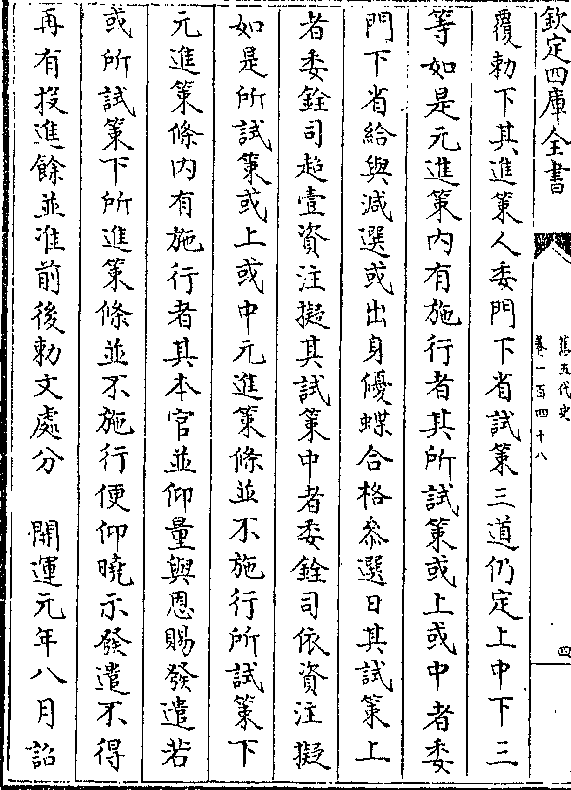 欽定四庫全書
舊五代史
卷一百四十八
四
覆勅下其進策人委門下省試策三道仍定上中下三
等如是元進策内有施行者其所試策或上或中者委
門下省給與減選或出身優牒合格叅選日其試策上
者委銓司超壹資注擬其試策中者委銓司依資注擬
如是所試策或上或中元進策條並不施行所試策下
元進策條内有施行者其本官並仰量與恩賜發遣若
或所試策下所進策條並不施行便仰曉示發遣不得
再有投進餘並准前後勅文處分　開運元年八月詔